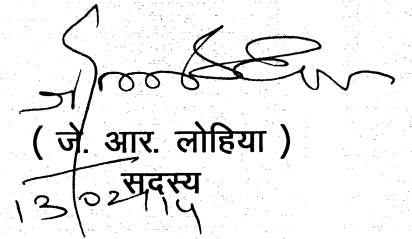 ( जे. आर. लोहिया )
सदस्य
13/02/14